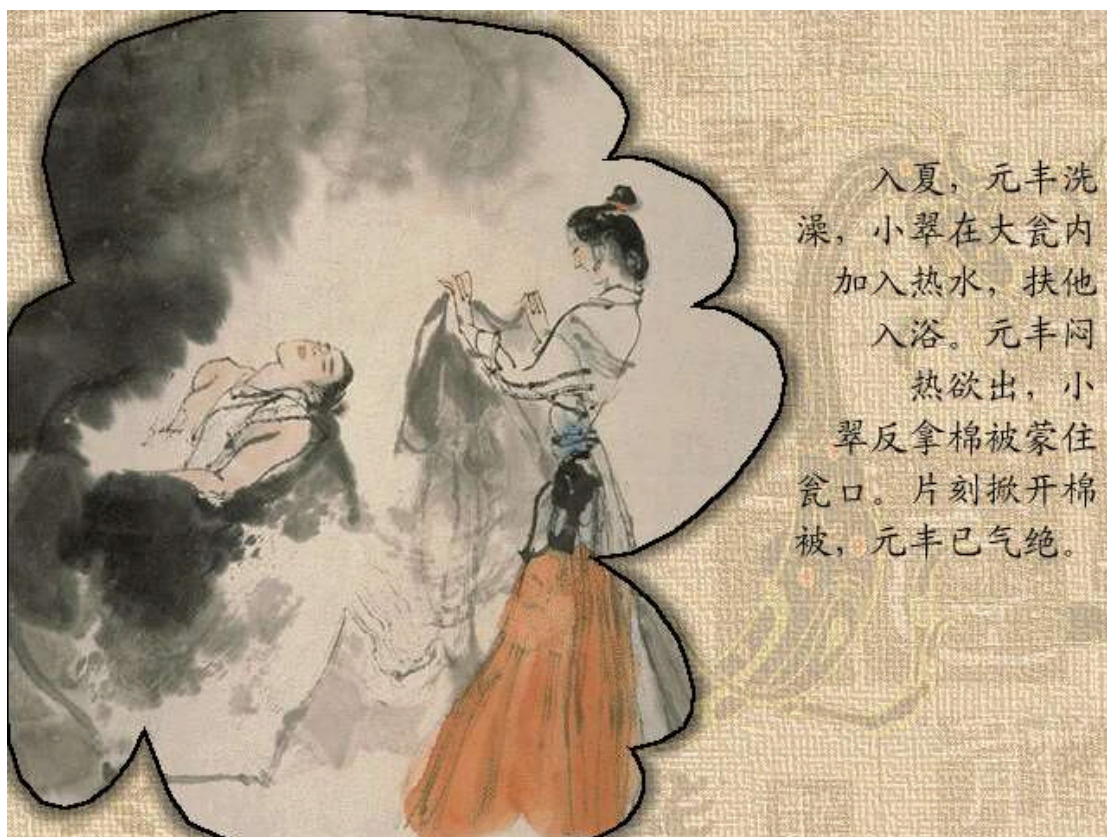 入夏，元丰洗
澡，小翠在大瓮内
加入热水，扶他
入浴。元丰闷
热欲出，小
翠反拿棉被蒙住
瓮口。片刻掀开棉
被，元丰已气绝。